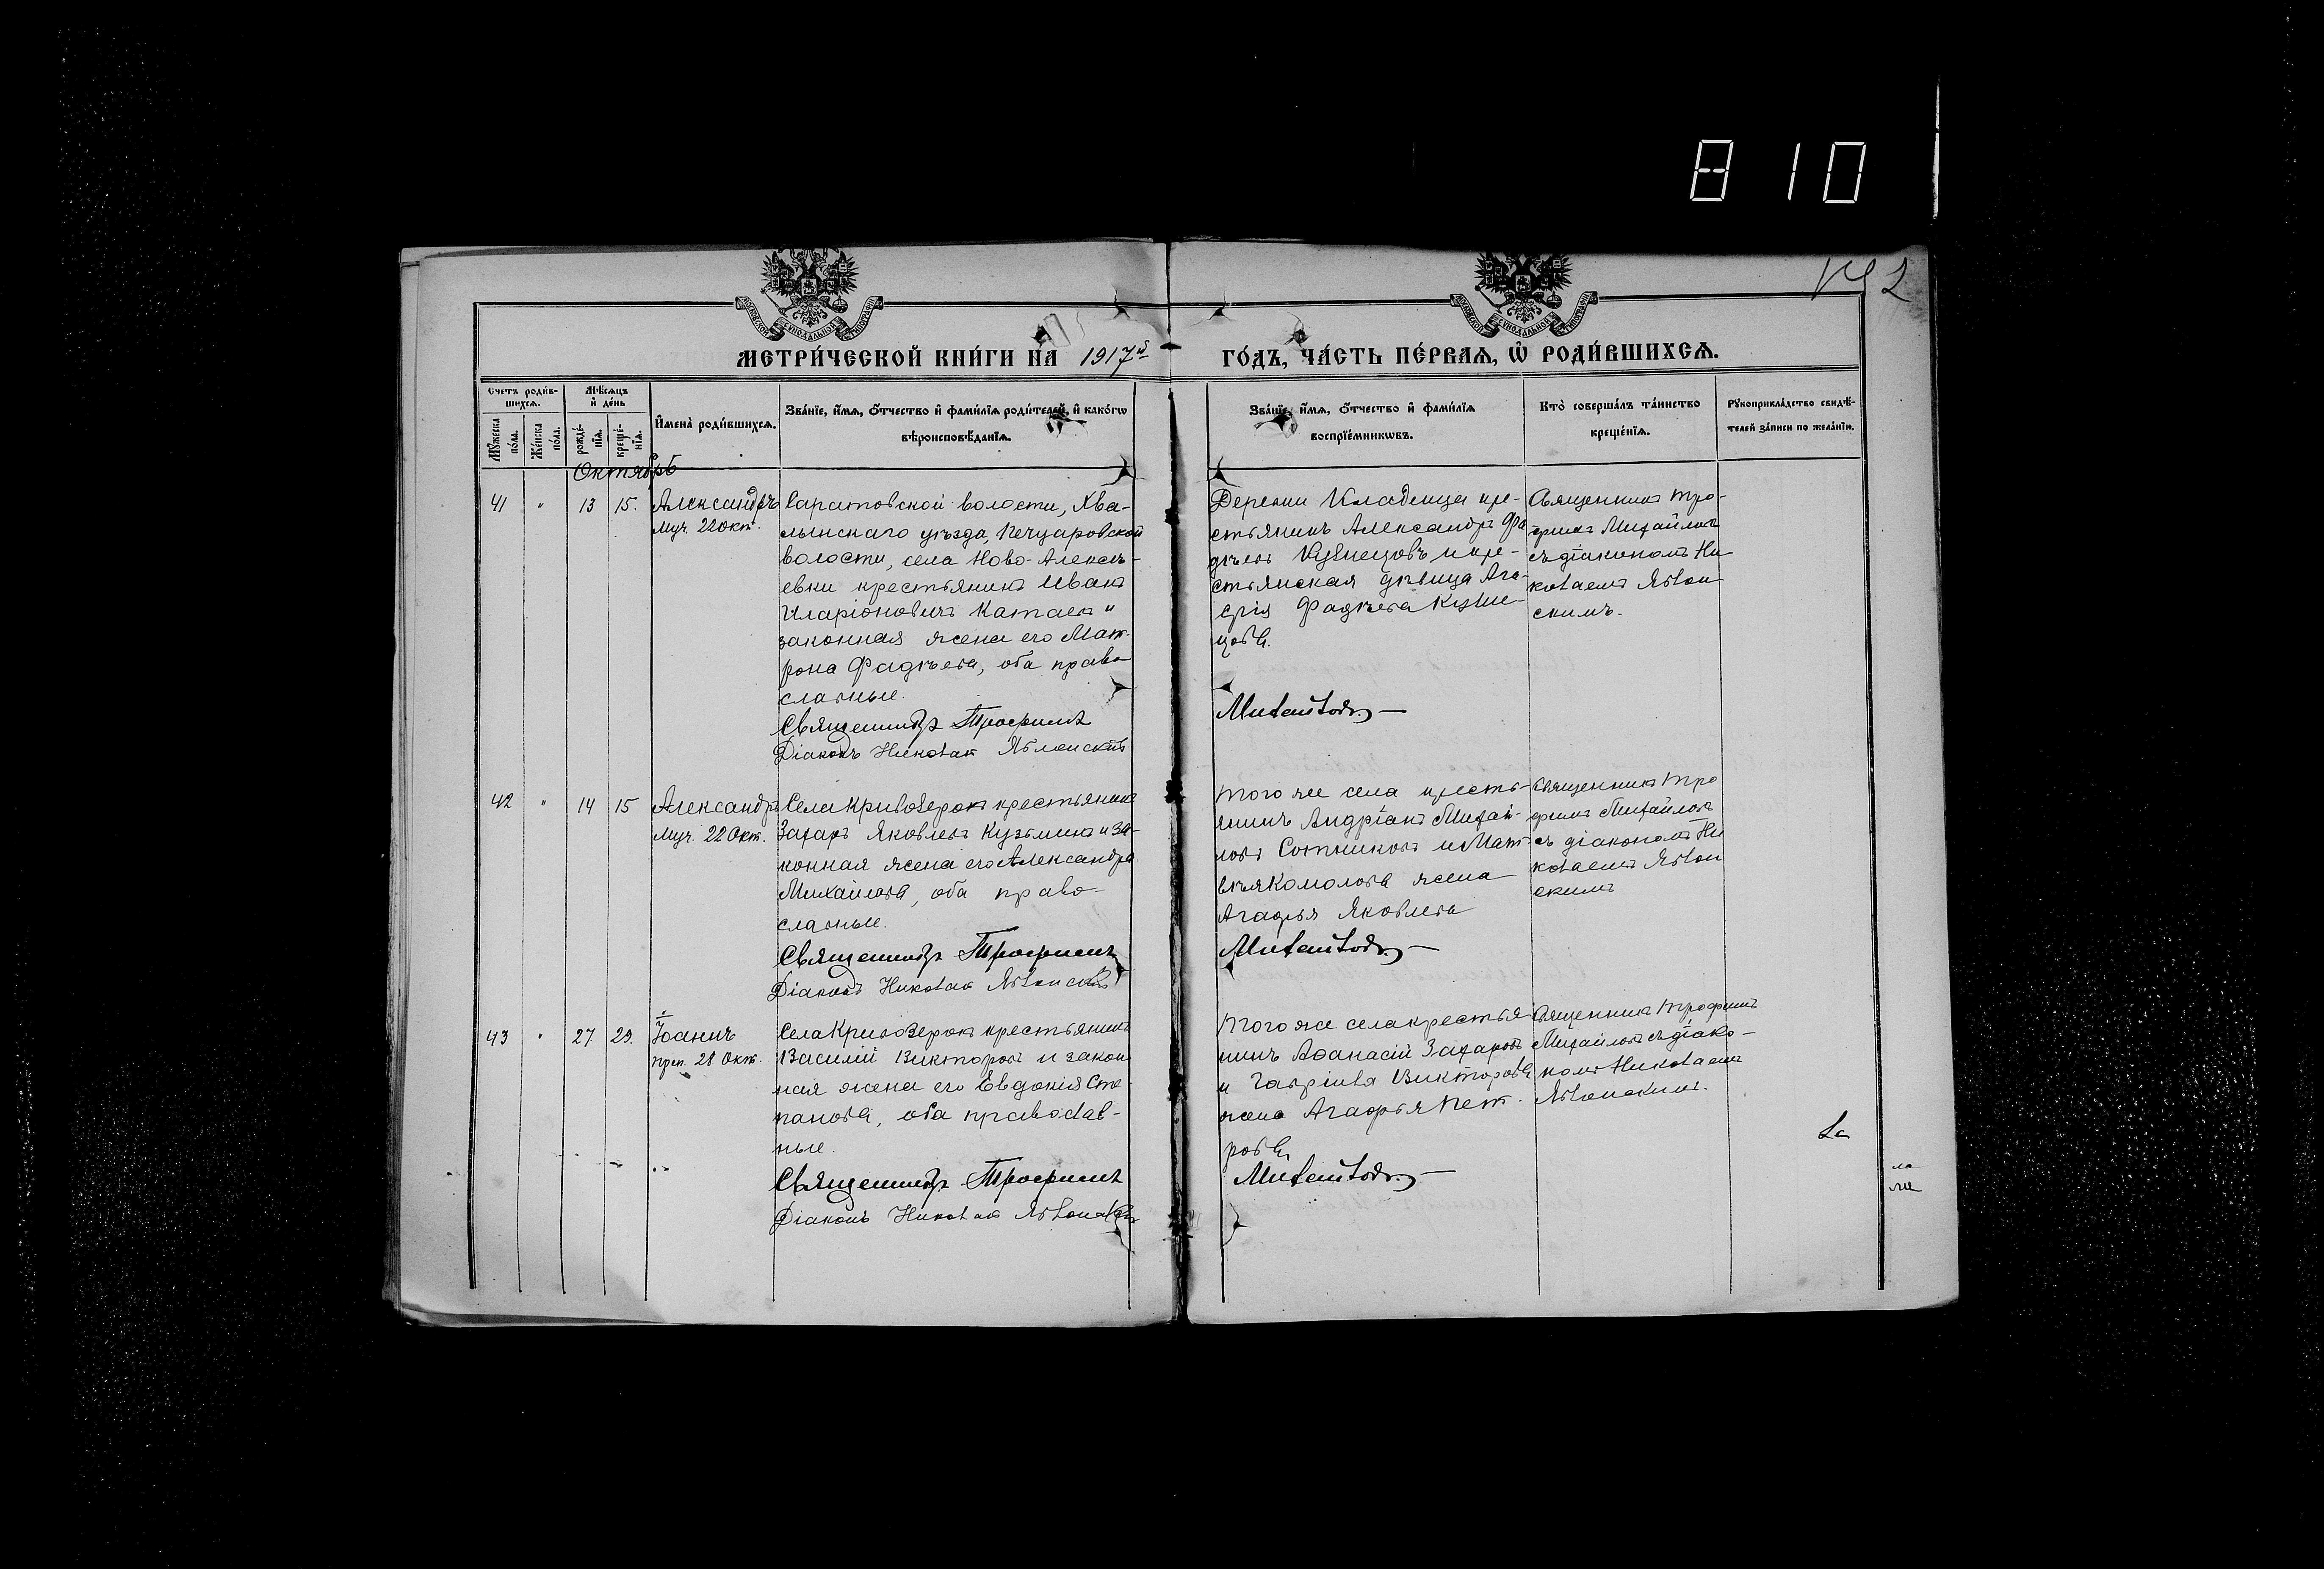 810
192
МЕТРИ́ЧЕСКОЙ КНИ́ГИ НА 1917й ГО́ДЪ, ЧА́СТЬ ПЕ́РВАѦ, Ѡ҆ РОДИ́ВШИХСѦ.
Счетъ роди́в-
шихсѧ.
Мѣ́сѧцъ
и҆ де́нь
Мꙋ́жеска
по́ла.
Же́нска
по́ла.
рожде́-
нїѧ.
креще́-
нїѧ.
И҆мена̀ роди́вшихсѧ.
Зва́нїе, и҆́мѧ, ѻ҆́тчество и҆ фами́лїѧ роди́телей, и҆ како́гѡ
вѣроисповѣ́данїѧ.
Зва́нїе, и҆́мѧ, ѻ҆́тчество и҆ фами́лїѧ
воспрїе́мникѡвъ.
Кто̀ соверша́лъ та́инство
креще́нїѧ.
Рꙋкоприкла́дство свидѣ́-
телей за́писи по жела́нїю.
Октябрь
41 " 13 15. Александръ
Муч. 22 Окт.
Саратовской волости, Хва-
лынскаго уѣзда,
волости, села Ново-Алексѣ-
евки крестьянинъ Иванъ
Иларіоновичъ Катаевъ и
законная жена его Мат-
рона Фадѣева, оба право-
славные.
Священникъ Трофимъ
Діаконъ Николай Яблонскій
Деревни Кладенца кре-
стьянинъ Александръ Фа
дѣевъ Кузнецовъ и кре-
стьянская дѣвица Ага-
Фадѣева Кузне-
цова.
Михайловъ
Священникъ Тро-
фимъ Михайловъ
съ діакономъ Ни
колаемъ Яблон
скимъ.
42 " 14 15 Александръ
Муч. 22 Окт.
Села Кривозерокъ крестьянинъ
Захаръ Яковлевъ Кузьминъ и за-
конная жена его Александра
Михайлова, оба право-
славные.
Священникъ Трофимъ
Діаконъ Николай Яблонскій
Того же села кресть-
янинъ Андріанъ Михай-
ловъ Сотниковъ и Мат-
вѣя Комолова жена
Агафья Яковлева
Михайловъ
Священникъ Тро
фимъ Михайловъ
съ діакономъ Ни
колаемъ Яблон
скимъ
43 " 27 29. Іоаннъ
Преп. 28 Окт.
Села Кривозерокъ крестьянинъ
Василій Викторовъ и закон
ная жена его Евдокія Сте-
панова, оба православ-
ные.
Священникъ Трофимъ
Діаконъ Николай Яблонскій
Того же села крестья
нинъ Аѳанасій Захаровъ
и Гавріила Викторова
жена Агафья Пет-
рова
Михайловъ
Священникъ Трофимъ
Михайловъ съ діако-
номъ Николаемъ
Яблонскимъ.